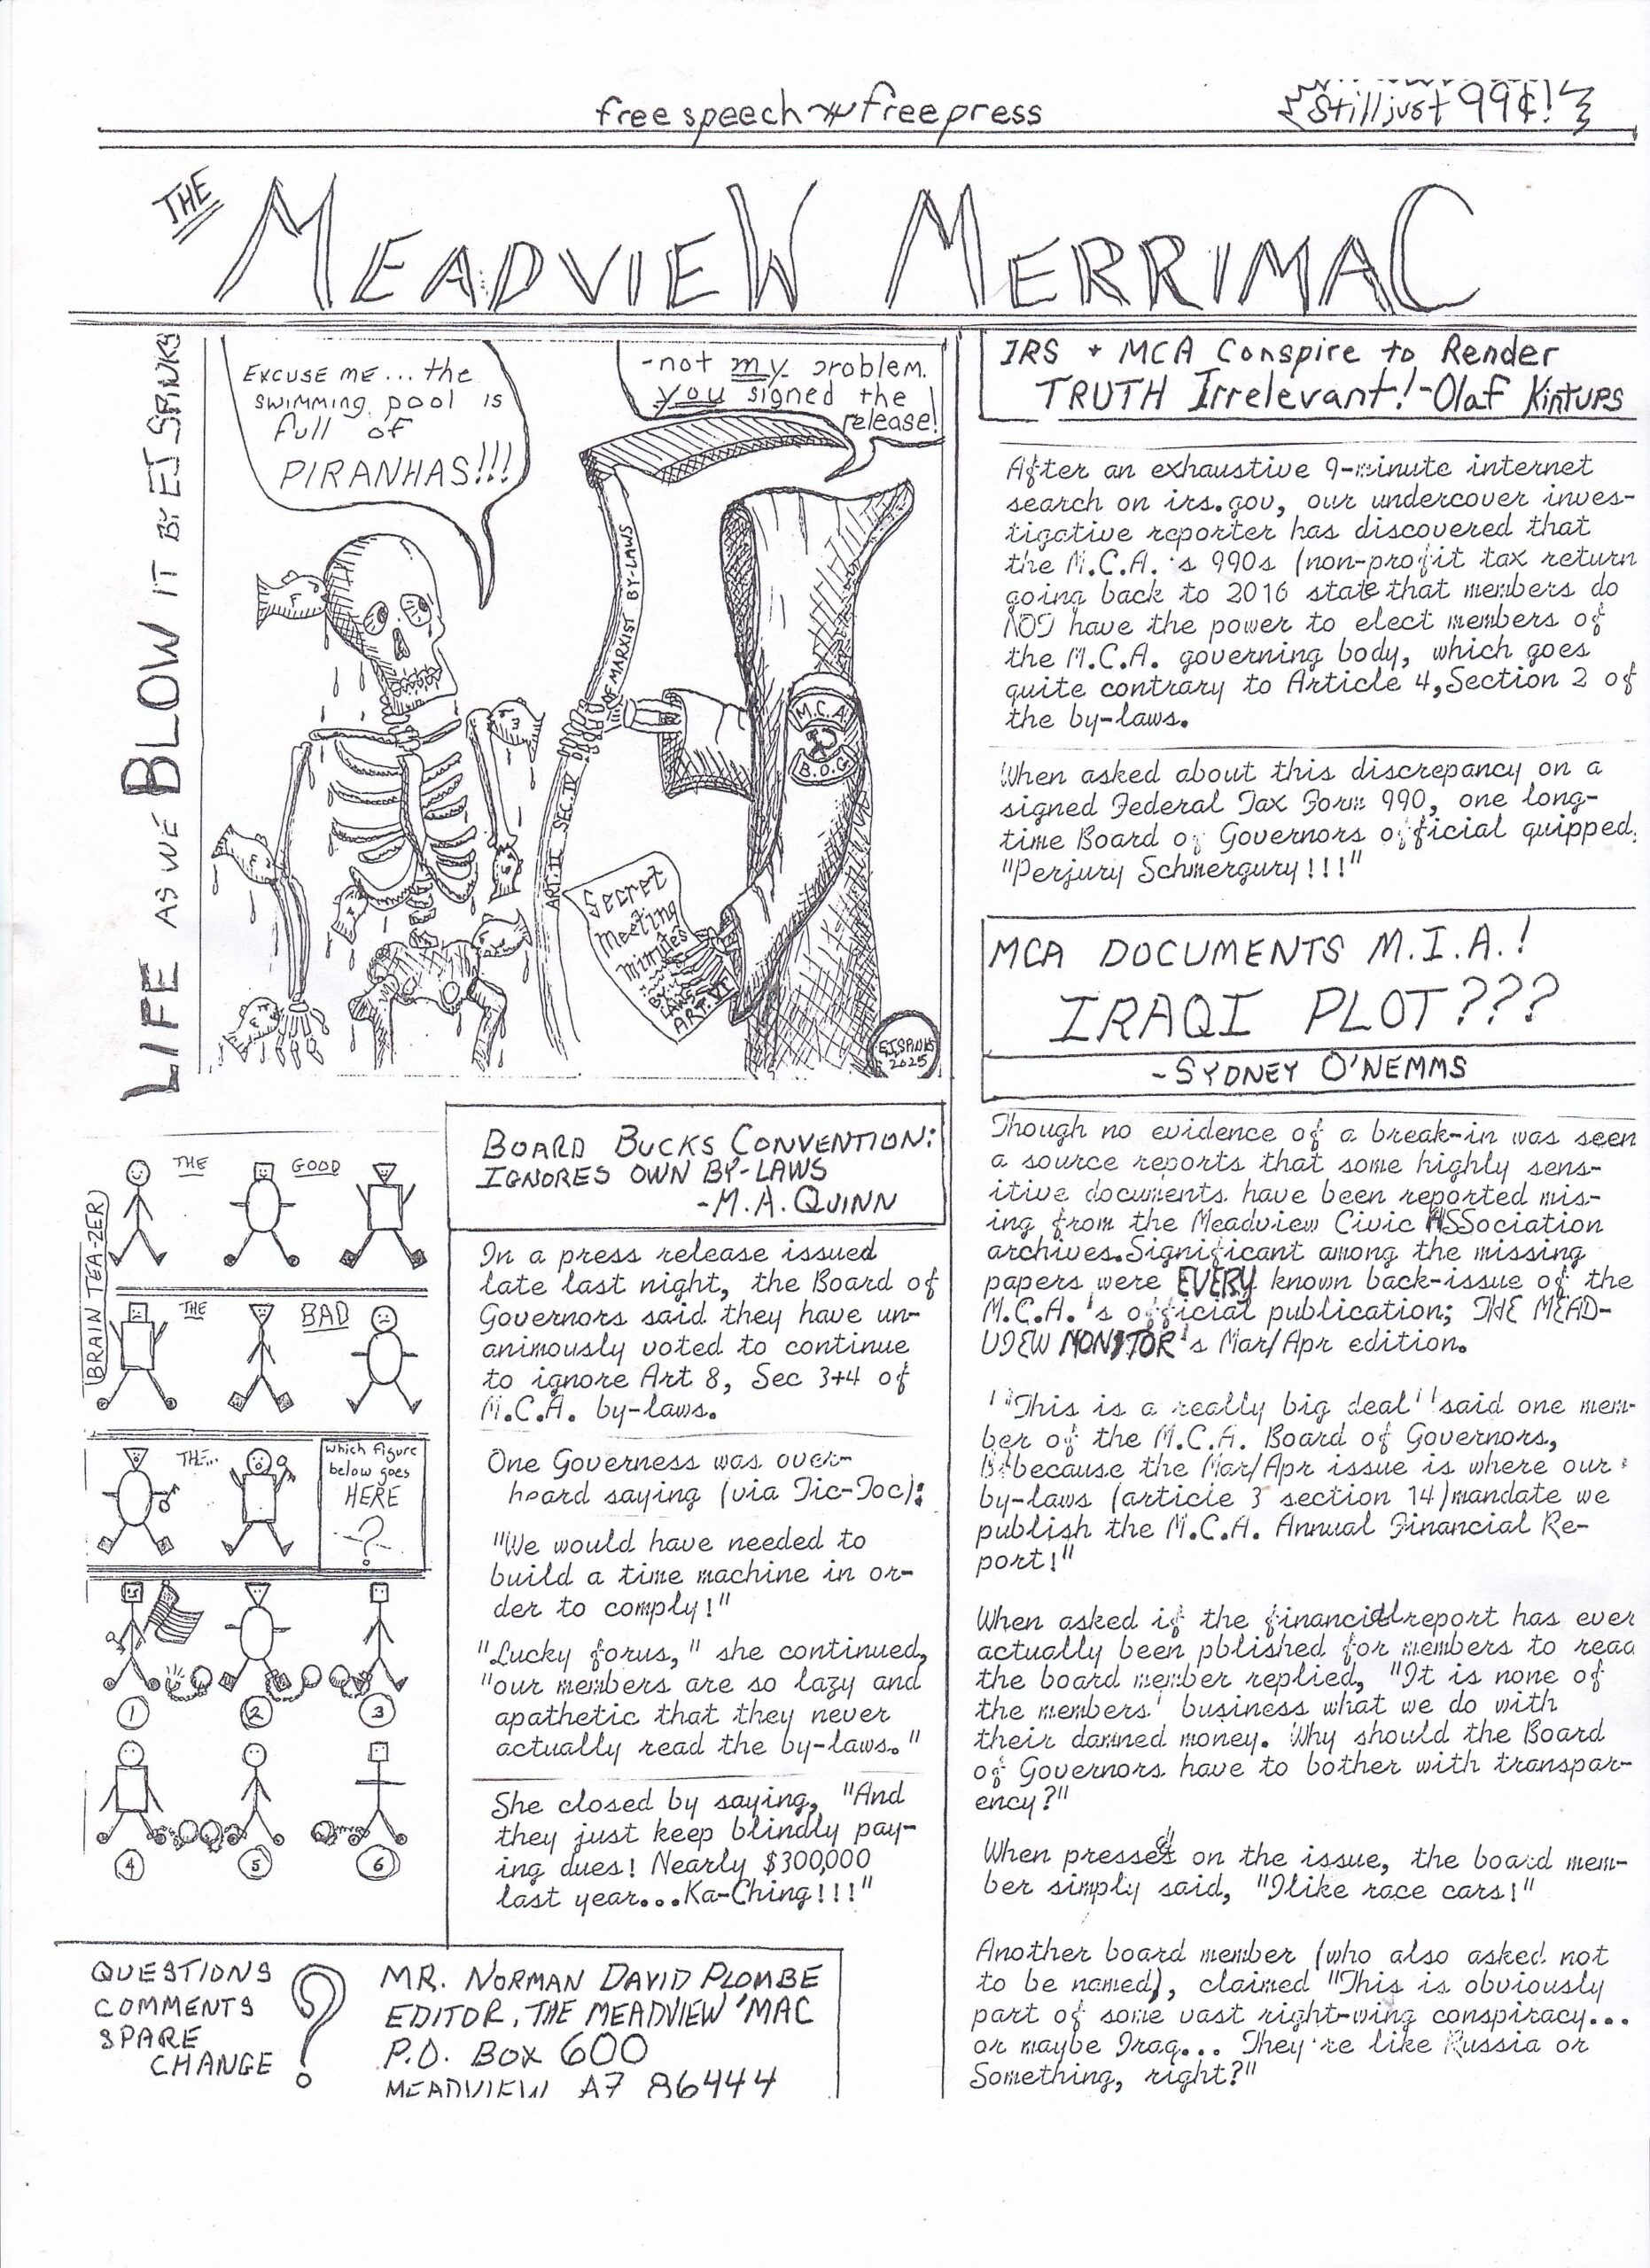 free speech free press
Still just 99¢!
THE
MEADVIEW MERRIMAC
LIFE AS WE BLOW IT BY EJ SPINKS
EXCUSE ME... the
SWIMMING pool is
full of
PIRANHAS!!!
-not my problem.
you signed the
release!
MARXIST BY-LAWS
ART. II SEC. IV
M.C.A.
B.O.G.
Secret
Meeting
Minutes
BY
LAWS
ART. VI
EJSPINKS
2025
BRAIN TEA-ZER
THE GOOD
THE BAD
THE...
which figure
below goes
HERE
?
1 2 3
4 5 6
BOARD BUCKS CONVENTION:
IGNORES OWN BY-LAWS
-M.A. QUINN
In a press release issued
late last night, the Board of
Governors said they have un-
animously voted to continue
to ignore Art 8, Sec 3+4 of
M.C.A. by-laws.
One Governess was over-
heard saying (via Tic-Toc):
"We would have needed to
build a time machine in or-
der to comply!"
"Lucky forus, " she continued,
"our members are so lazy and
apathetic that they never
actually read the by-laws."
She closed by saying, "And
they just keep blindly pay-
ing dues! Nearly $300,000
last year...Ka-Ching!!!"
IRS + MCA Conspire to Render
TRUTH Irrelevant!-Olaf Kintups
After an exhaustive 9-minute internet
search on irs.gov, our undercover inves-
tigative reporter has discovered that
the M.C.A.'s 990s (non-profit tax return
going back to 2016 state that members do
NOT have the power to elect members of
the M.C.A. governing body, which goes
quite contrary to Article 4, Section 2 of
the by-laws.
When asked about this discrepancy on a
signed Federal Tax Form 990, one long-
time Board of Governors official quipped,
"Perjury Schmergury!!!"
MCA DOCUMENTS M.I.A.!
IRAQI PLOT???
-SYDNEY O'NEMMS
Though no evidence of a break-in was seen
a source reports that some highly sens-
itive documents have been reported mis-
ing from the Meadview Civic ASSociation
archives.Significant among the missing
papers were EVERY known back-issue of the
M.C.A.'s official publication; THE MEAD-
VIEW MONITOR's Mar/Apr edition.
"This is a really big deal" said one mem-
ber of the M.C.A. Board of Governors,
because the Mar/Apr issue is where our
by-laws (article 3 section 14)mandate we
publish the M.C.A. Annual Financial Re-
port!"
When asked if the financial report has ever
actually been pblished for members to read
the board member replied, "It is none of
the members' business what we do with
their damned money. Why should the Board
of Governors have to bother with transpar-
ency?"
When pressed on the issue, the board mem-
ber simply said, "Ilike race cars!"
Another board member (who also asked not
to be named), claimed "This is obviously
part of some vast right-wing conspiracy...
or maybe Iraq... They're like Russia or
Something, right?"
QUESTIONS
COMMENTS
SPARE
CHANGE
?
MR. NORMAN DAVID PLOMBE
EDITOR, THE MEADVIEW 'MAC
P.O. BOX 600
MEADVIEW AZ 86444